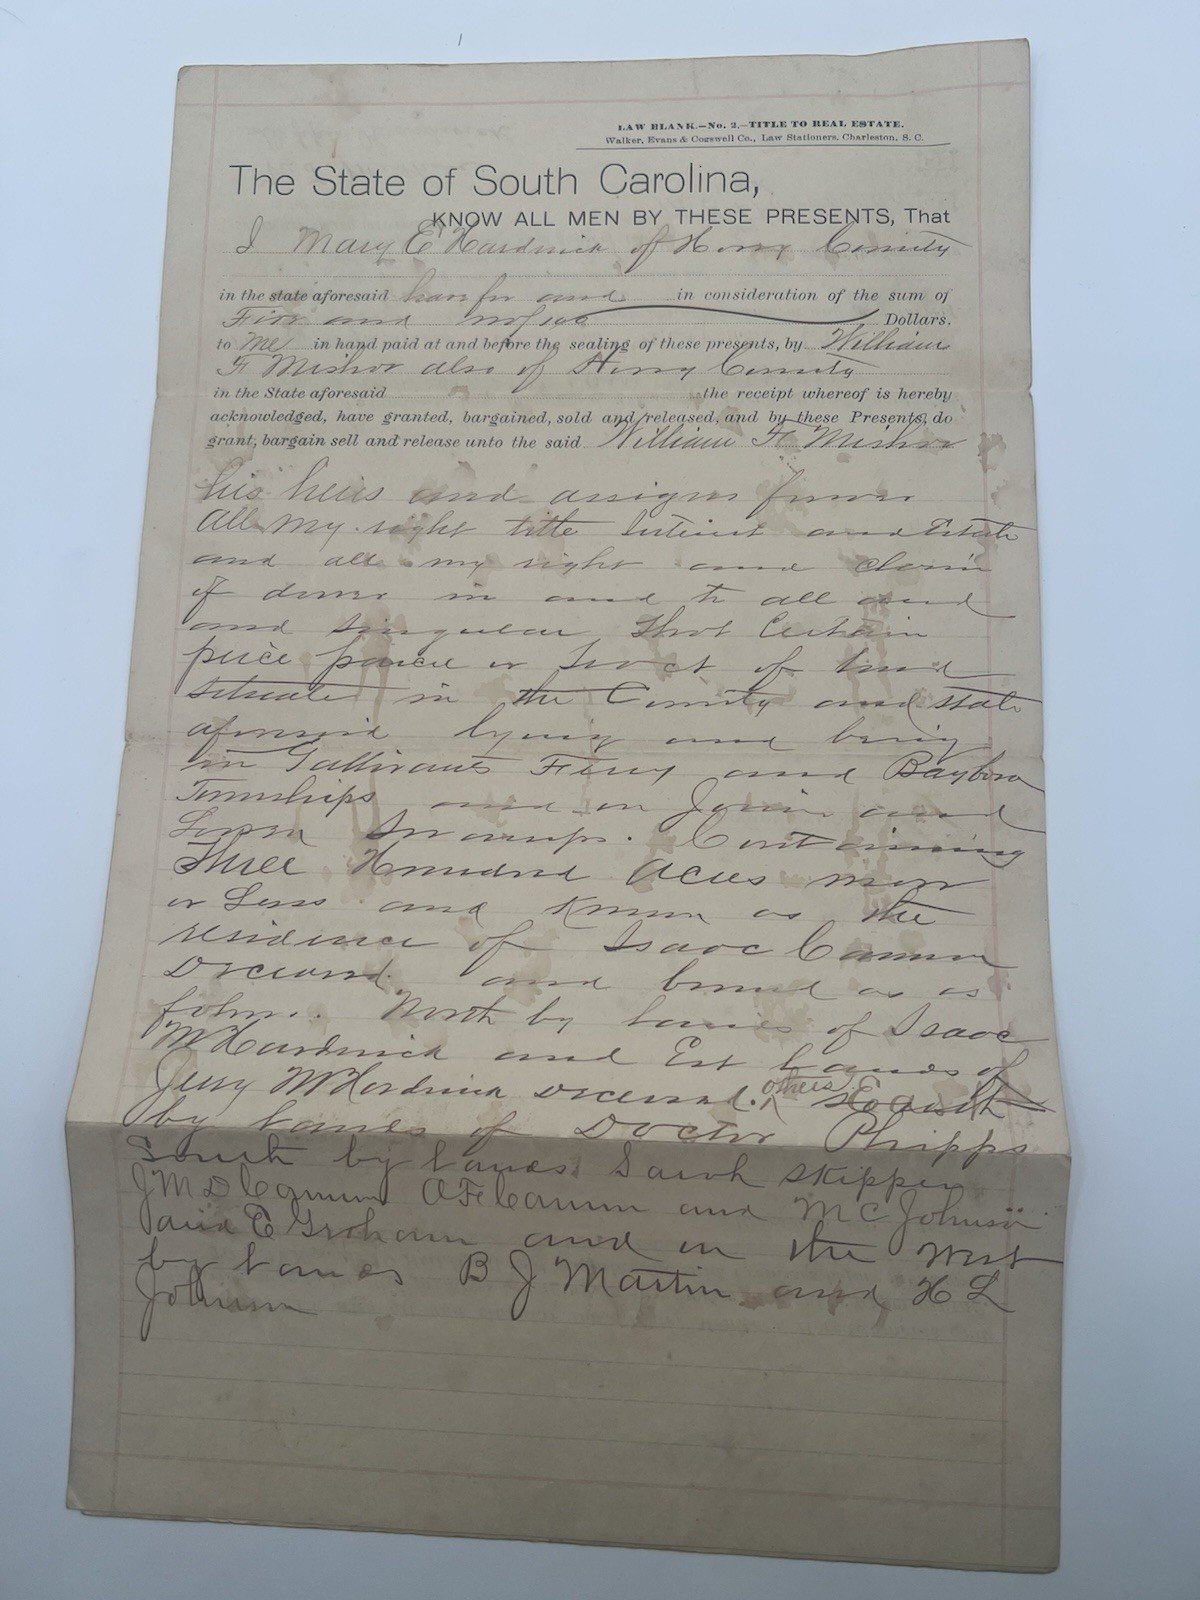 LAW BLANK.—No. 2.—TITLE TO REAL ESTATE.
Walker, Evans & Cogswell Co., Law Stationers, Charleston, S. C.
The State of South Carolina,
KNOW ALL MEN BY THESE PRESENTS, That
I Mary E Hardwick of Horry County
in the state aforesaid have for and in consideration of the sum of
Five and no/100 Dollars.
to me in hand paid at and before the sealing of these presents, by William
F Mishoe also of Horry County
in the State aforesaid the receipt whereof is hereby
acknowledged, have granted, bargained, sold and released, and by these Presents, do
grant, bargain sell and release unto the said William F Mishoe
his heirs and assigns
all my right title Interest and Estate
and all my right and claim
of dower in and to all and
and singular, that certain
peice parcel or tract of land
situate in the County and State
aforesaid lying and being
in Gallivants Ferry and Bayboro
Townships and on and
Swamps. Containing
Three Hundred Acres more
or Less and known as the
residence of Isaac Cannon
Deceased. and bound as
follows. North by lands of Isaac
M Hardwick and Est lands of
Jerry M Hardwick deceased. others
by lands of Doctor Phipps
South by lands Sarah Skipper
J M D Cannon O F Cannon and M C Johnson
E Graham and on the West
by lands B J Martin and H L
Johnson